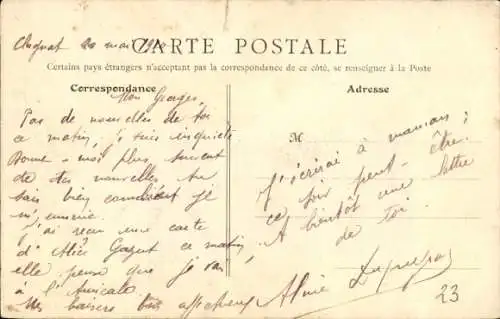 20 mai 1910
CARTE POSTALE
Certains pays étrangers n'acceptant pas la correspondance de ce côté, se renseigner à la Poste
Correspondance
Mon Georges,
Pas de nouvelles de toi
ce matin, je suis inquiète
Donne-moi plus souvent
de tes nouvelles tu
sais bien combien je
m'ennuie.
J'ai reçu une carte
d'Alice ce matin,
elle pense que je vais
à l'Amicale.
Mes baisers bien affectueux
Adresse
M
J'écrirai à maman
ce soir peut-être.
A bientôt une lettre
de toi.
Aline
23